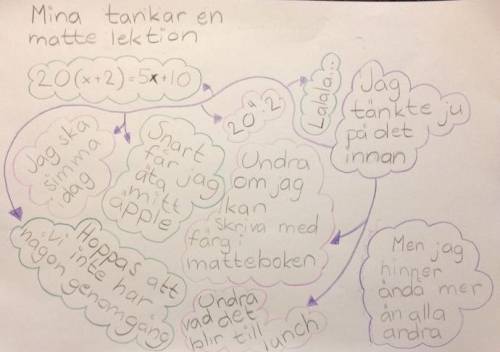 Mina tankar en
matte lektion
20(x+2)=5x+10
Lalala...
Jag
tänkte ju
på det
innan
Jag ska
simma
dag
Snart
får jag
äta
mitt
äpple
Undra
om jag
kan
skriva med
färg i
matteboken
Hoppas att
vi inte har
någon genomgång
Undra
vad det
blir till
lunch
Men jag
hinner
ändå mer
än alla
andra